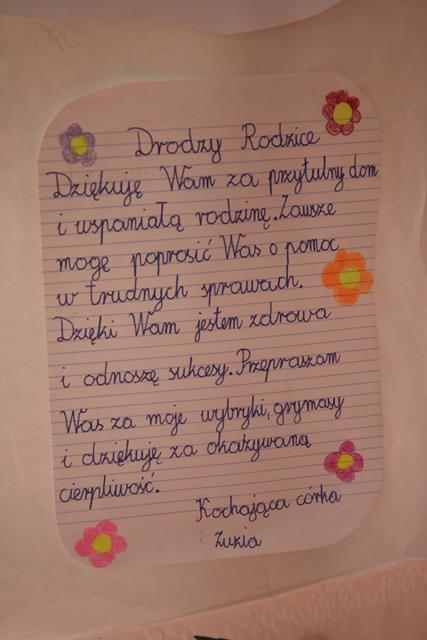 Drodzy Rodzice
Dziękuję Wam za przytulny dom
i wspaniałą rodzinę. Zawsze
mogę poprosić Was o pomoc
w trudnych sprawach.
Dzięki Wam jestem zdrowa
i odnoszę sukcesy. Przepraszam
Was za moje wybryki, grymasy
i dziękuję za okazywaną
cierpliwość.
Kochająca córka
Zuzia